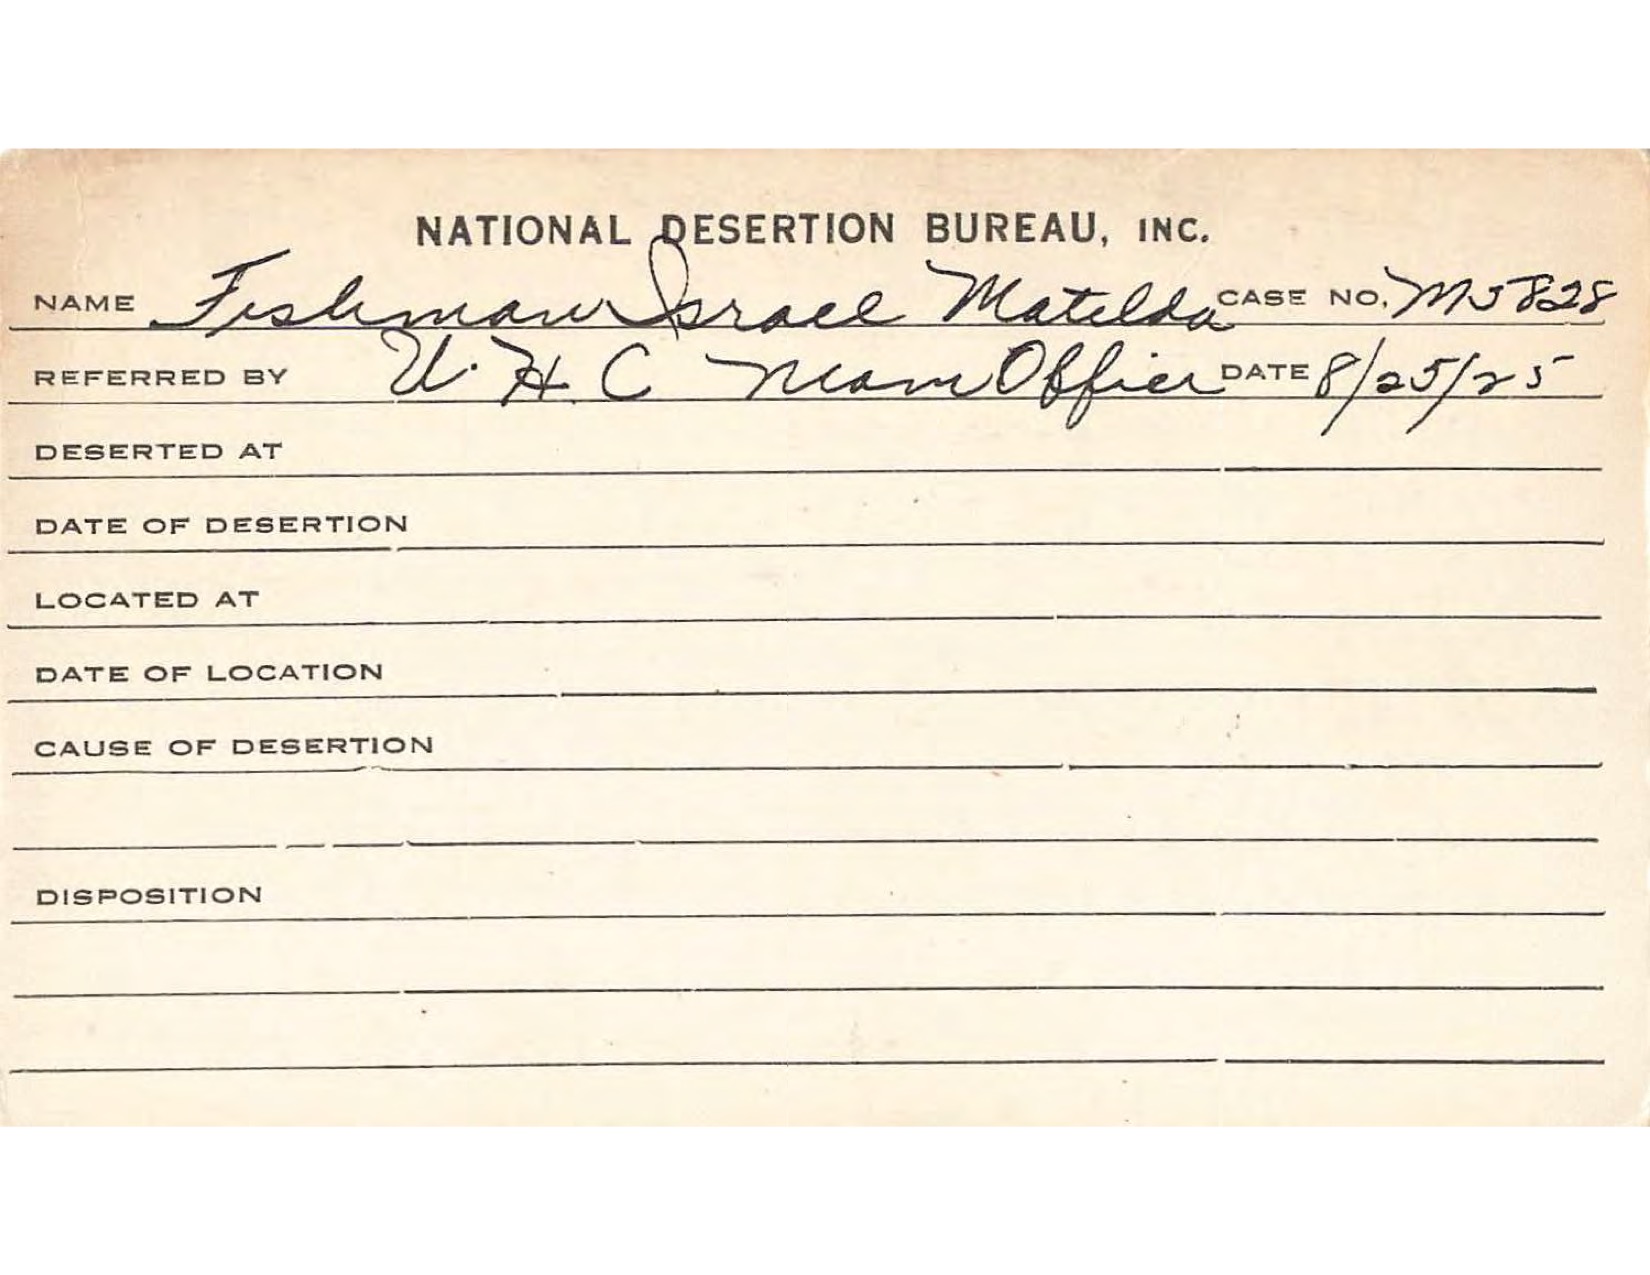 NATIONAL DESERTION BUREAU, INC.
NAME Fishman Israel Matilda CASE NO. M5828
REFERRED BY U.H.C Main Office DATE 8/25/25
DESERTED AT
DATE OF DESERTION
LOCATED AT
DATE OF LOCATION
CAUSE OF DESERTION
DISPOSITION